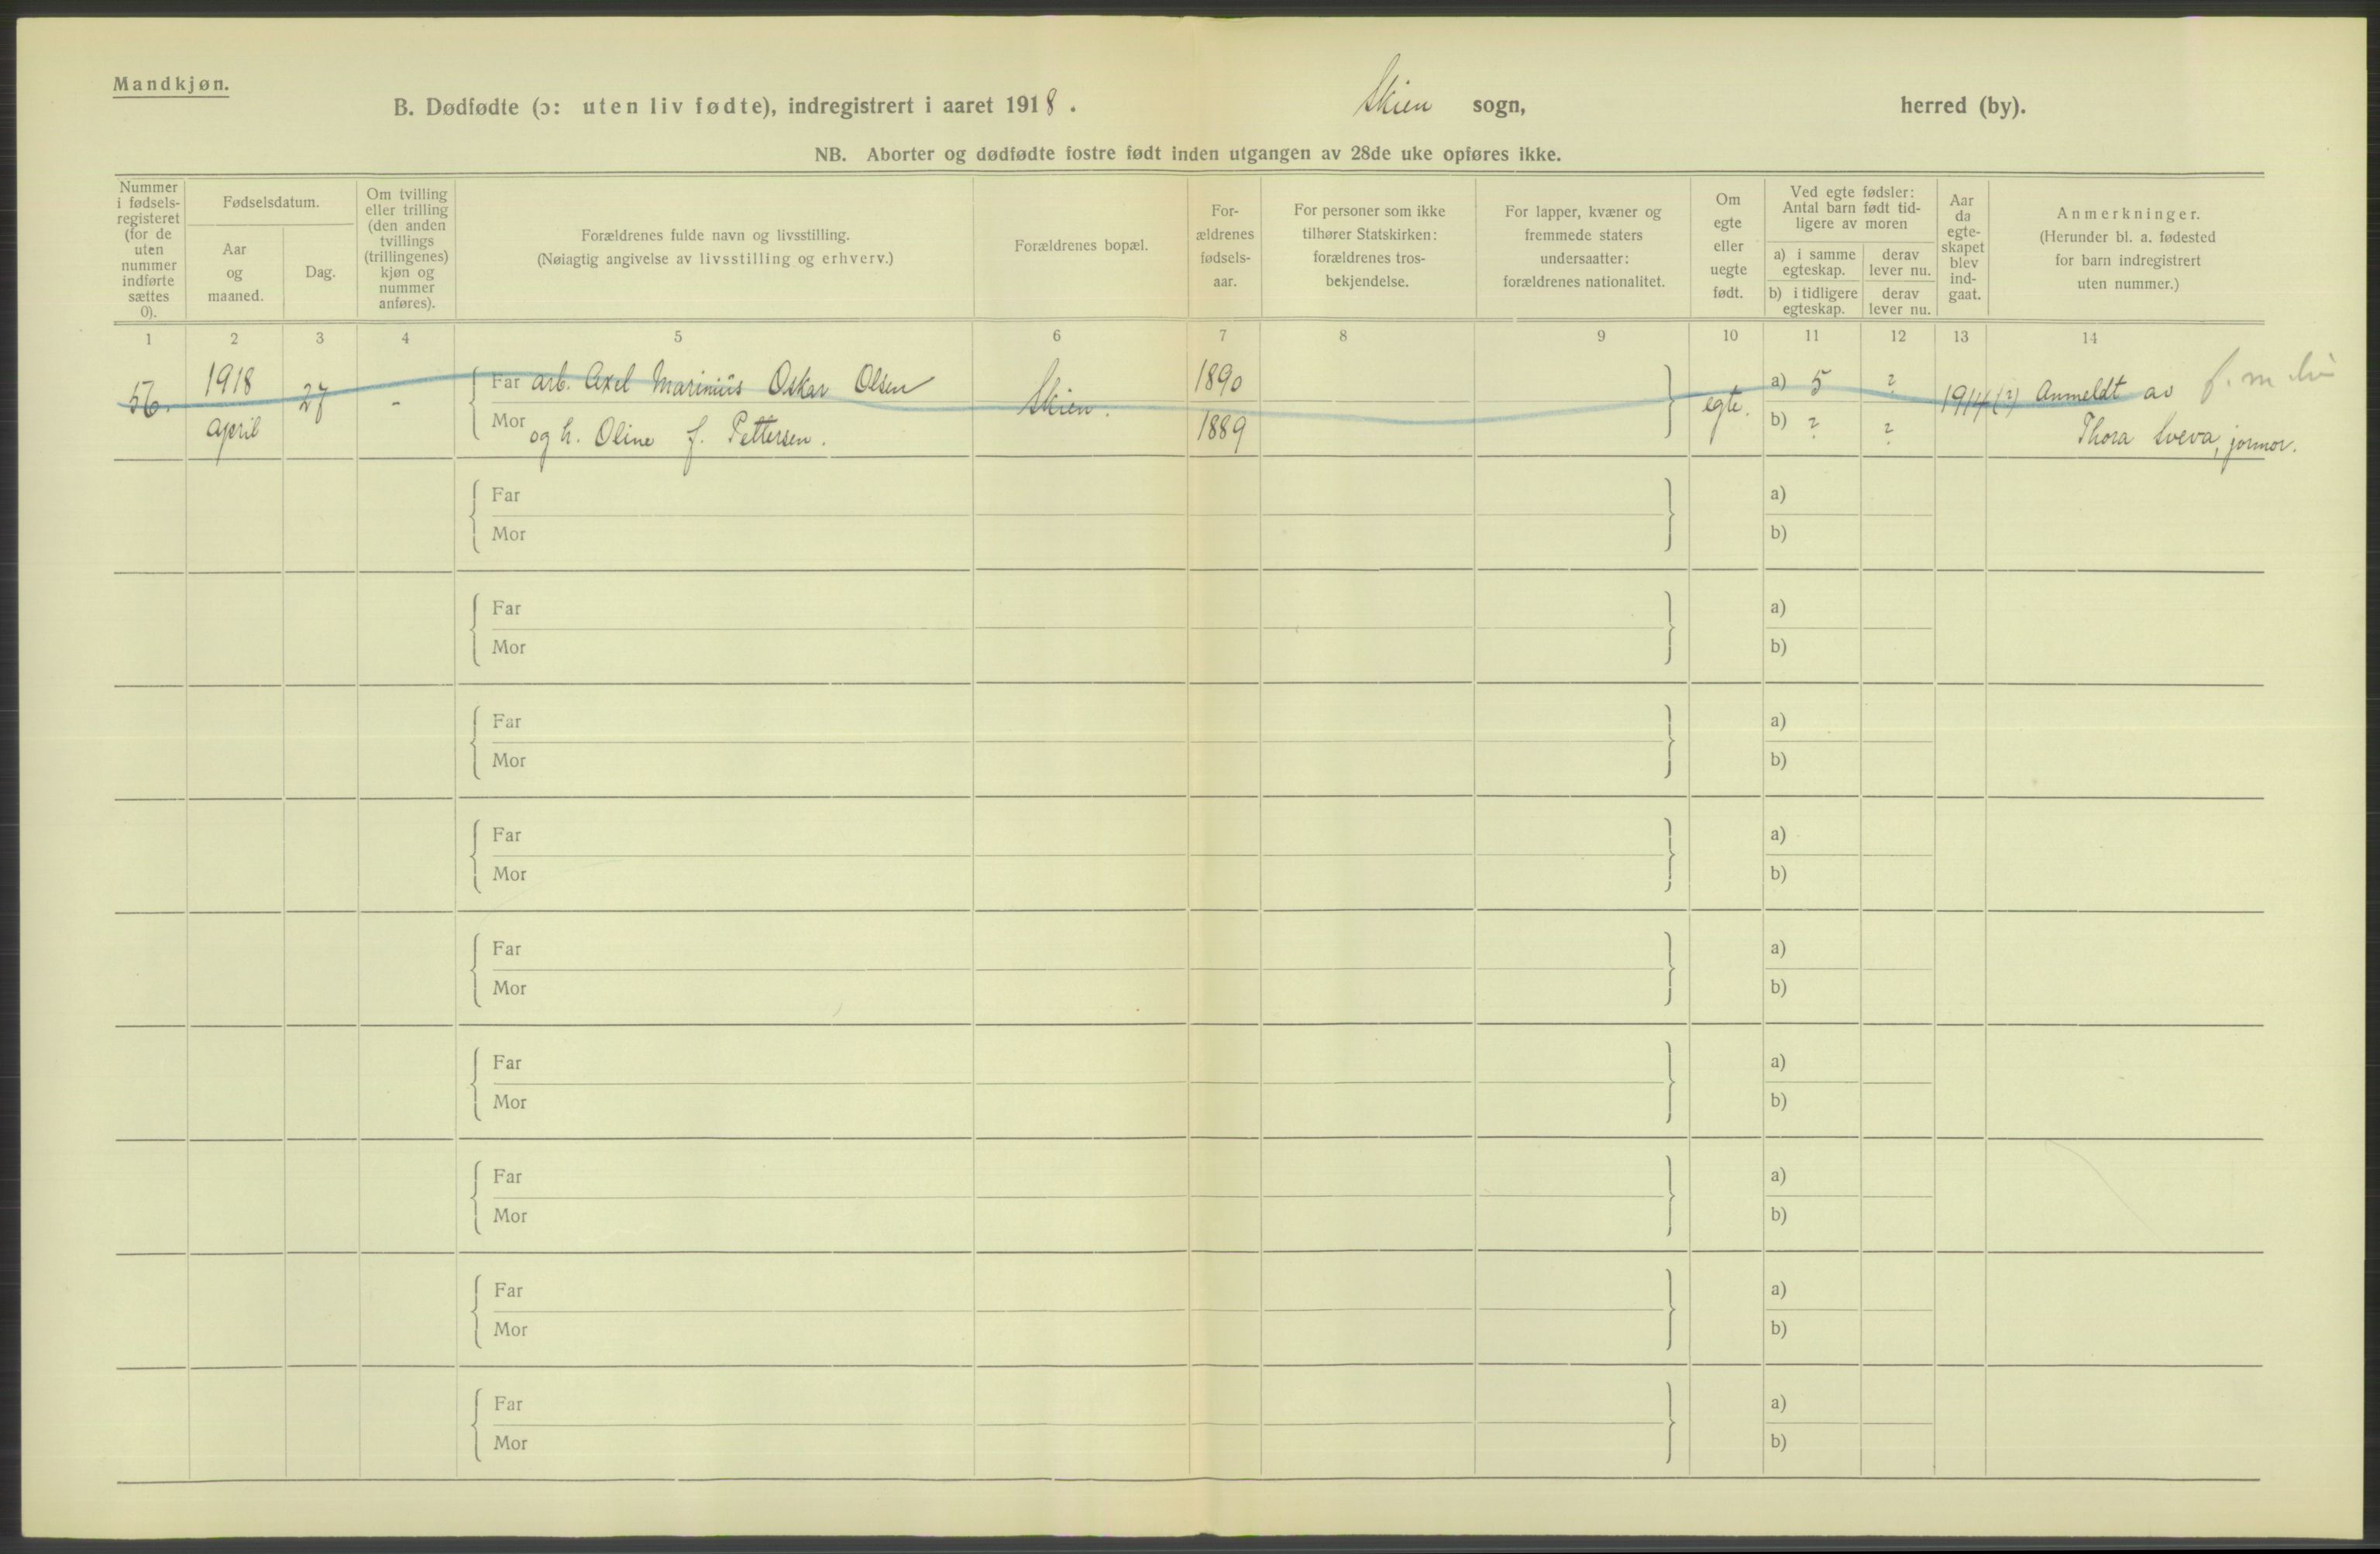 Mandkjøn.
B. Dødfødte (ɔ: uten liv fødte), indregistrert i aaret 1918. Skien sogn, herred (by).
NB. Aborter og dødfødte fostre født inden utgangen av 28de uke opføres ikke.
Nummer
i fødsels-
registeret
(for de
uten
nummer
indførte
sættes
0).
Fødselsdatum.
Aar
og
maaned.
Dag.
Om tvilling
eller trilling
(den anden
tvillings
(trillingenes)
kjøn og
nummer
anføres).
Forældrenes fulde navn og livsstilling.
(Nøiagtig angivelse av livsstilling og erhverv.)
Forældrenes bopæl.
For-
ældrenes
fødsels-
aar.
For personer som ikke
tilhører Statskirken:
forældrenes tros-
bekjendelse.
For lapper, kvæner og
fremmede staters
undersaatter:
forældrenes nationalitet.
Om
egte
eller
uegte
født.
Ved egte fødsler:
Antal barn født tid-
ligere av moren
a) i samme
egteskap.
derav
lever nu.
b) i tidligere
egteskap.
derav
lever nu.
Aar
da
egte-
skapet
blev
ind-
gaat.
Anmerkninger.
(Herunder bl. a. fødested
for barn indregistrert
uten nummer.)
1 2 3 4 5 6 7 8 9 10 11 12 13 14
56. 1918 april 27 -
Far arb. Axel Marinius Oskar Olsen
Mor og h. Oline f. Pettersen.
Skien.
1890
1889
egte.
a) 5 ?
b) ? ?
1914(?)
Anmeldt av
Thora Sveva, jormor.
Far a)
Mor b)
Far a)
Mor b)
Far a)
Mor b)
Far a)
Mor b)
Far a)
Mor b)
Far a)
Mor b)
Far a)
Mor b)
Far a)
Mor b)
Far a)
Mor b)